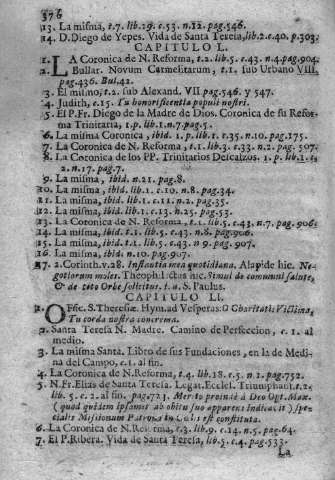 376
13. La misma, t.7. lib.29. c.53. n.12. pag.546.
14. D. Diego de Yepes. Vida de Santa Teresa, lib.2. c.40. p.303.
CAPITULO L.
1. LA Coronica de N. Reforma, t.2. lib.5. c.43. n.4. pag.904.
2. Bullar. Novum Carmelitarum, t.1. sub Urbano VIII.
pag.436. Bul.42.
3. El mismo, t.2. sub Alexand. VII pag.546. y 547.
4. Judith, c.15. Tu honorificentia populi nostri.
5. El P.Fr. Diego de la Madre de Dios. Coronica de su Refor-
ma Trinitaria, t.p. lib.1. n.7. pag.5.
6. La misma Coronica, ibid. 1. p. lib.1. c.35. n.10. pag.175.
7. La Coronica de N. Reforma, t.1. lib.3. c.33. n.2. pag.507.
8. La Coronica de los PP. Trinitarios Descalzos. 1. p. lib.1. c.
2. n.17. pag.7.
9. La misma, ibid. n.21. pag.8.
10. La misma, ibid. lib.1. c.10. n.8. pag.34.
11. La misma, ibid. lib.1. c.11. n.2. pag.35.
12. La misma, ibid. lib.1. c.13. n.25. pag.53.
13. La Coronica de N. Reforma, t.1. lib.5. c.43. n.7. pag.906.
14. La misma, ibid. t.1. lib.5. c.43. n 9. pag.906.
15. La misma, ibid. t.1. lib.5. c.43. n.9. pag.907.
16. La misma, ibid. n.10. pag.907.
17. 2. Corinth. v.28. Instantia mea quotidiana. Alap. de hic. Ne-
gotiorum moles. Theoph. hic. Simul de communi salute,
& de toto Orbe sollicitus. t.a. S. Paulus.
CAPITULO LI.
1. OFfic. S. Theresiæ. Hym. ad Vesperas: O Charitatis Victima,
Tu corda nostra concrema.
2. Santa Teresa N. Madre. Camino de Perfeccion, c. 1. al
medio.
3. La misma Santa. Libro de sus Fundaciones, en la de Medi-
na del Campo, c.1. al fin.
4. La Coronica de N. Reforma, t.4. lib.18. c.5. n.2. pag.752.
5. N. Fr. Elias de Santa Teresa. Legat. Eccles. Triumphant. t.2.
lib.5. c.2. al fin. pag.272. Merito proinde à Deo Opt. Max.
(quod quidem ipsamet ab obitu suo apparens indicavit) spe-
cialis Missionum Patrona in Cœlis est constituta.
6. La Coronica de N. Reforma, c.3. lib.9. c.14. n.5. pag.64.
7. El P. Ribera. Vida de Santa Teresa, lib.5. c.4. pag.533.
La